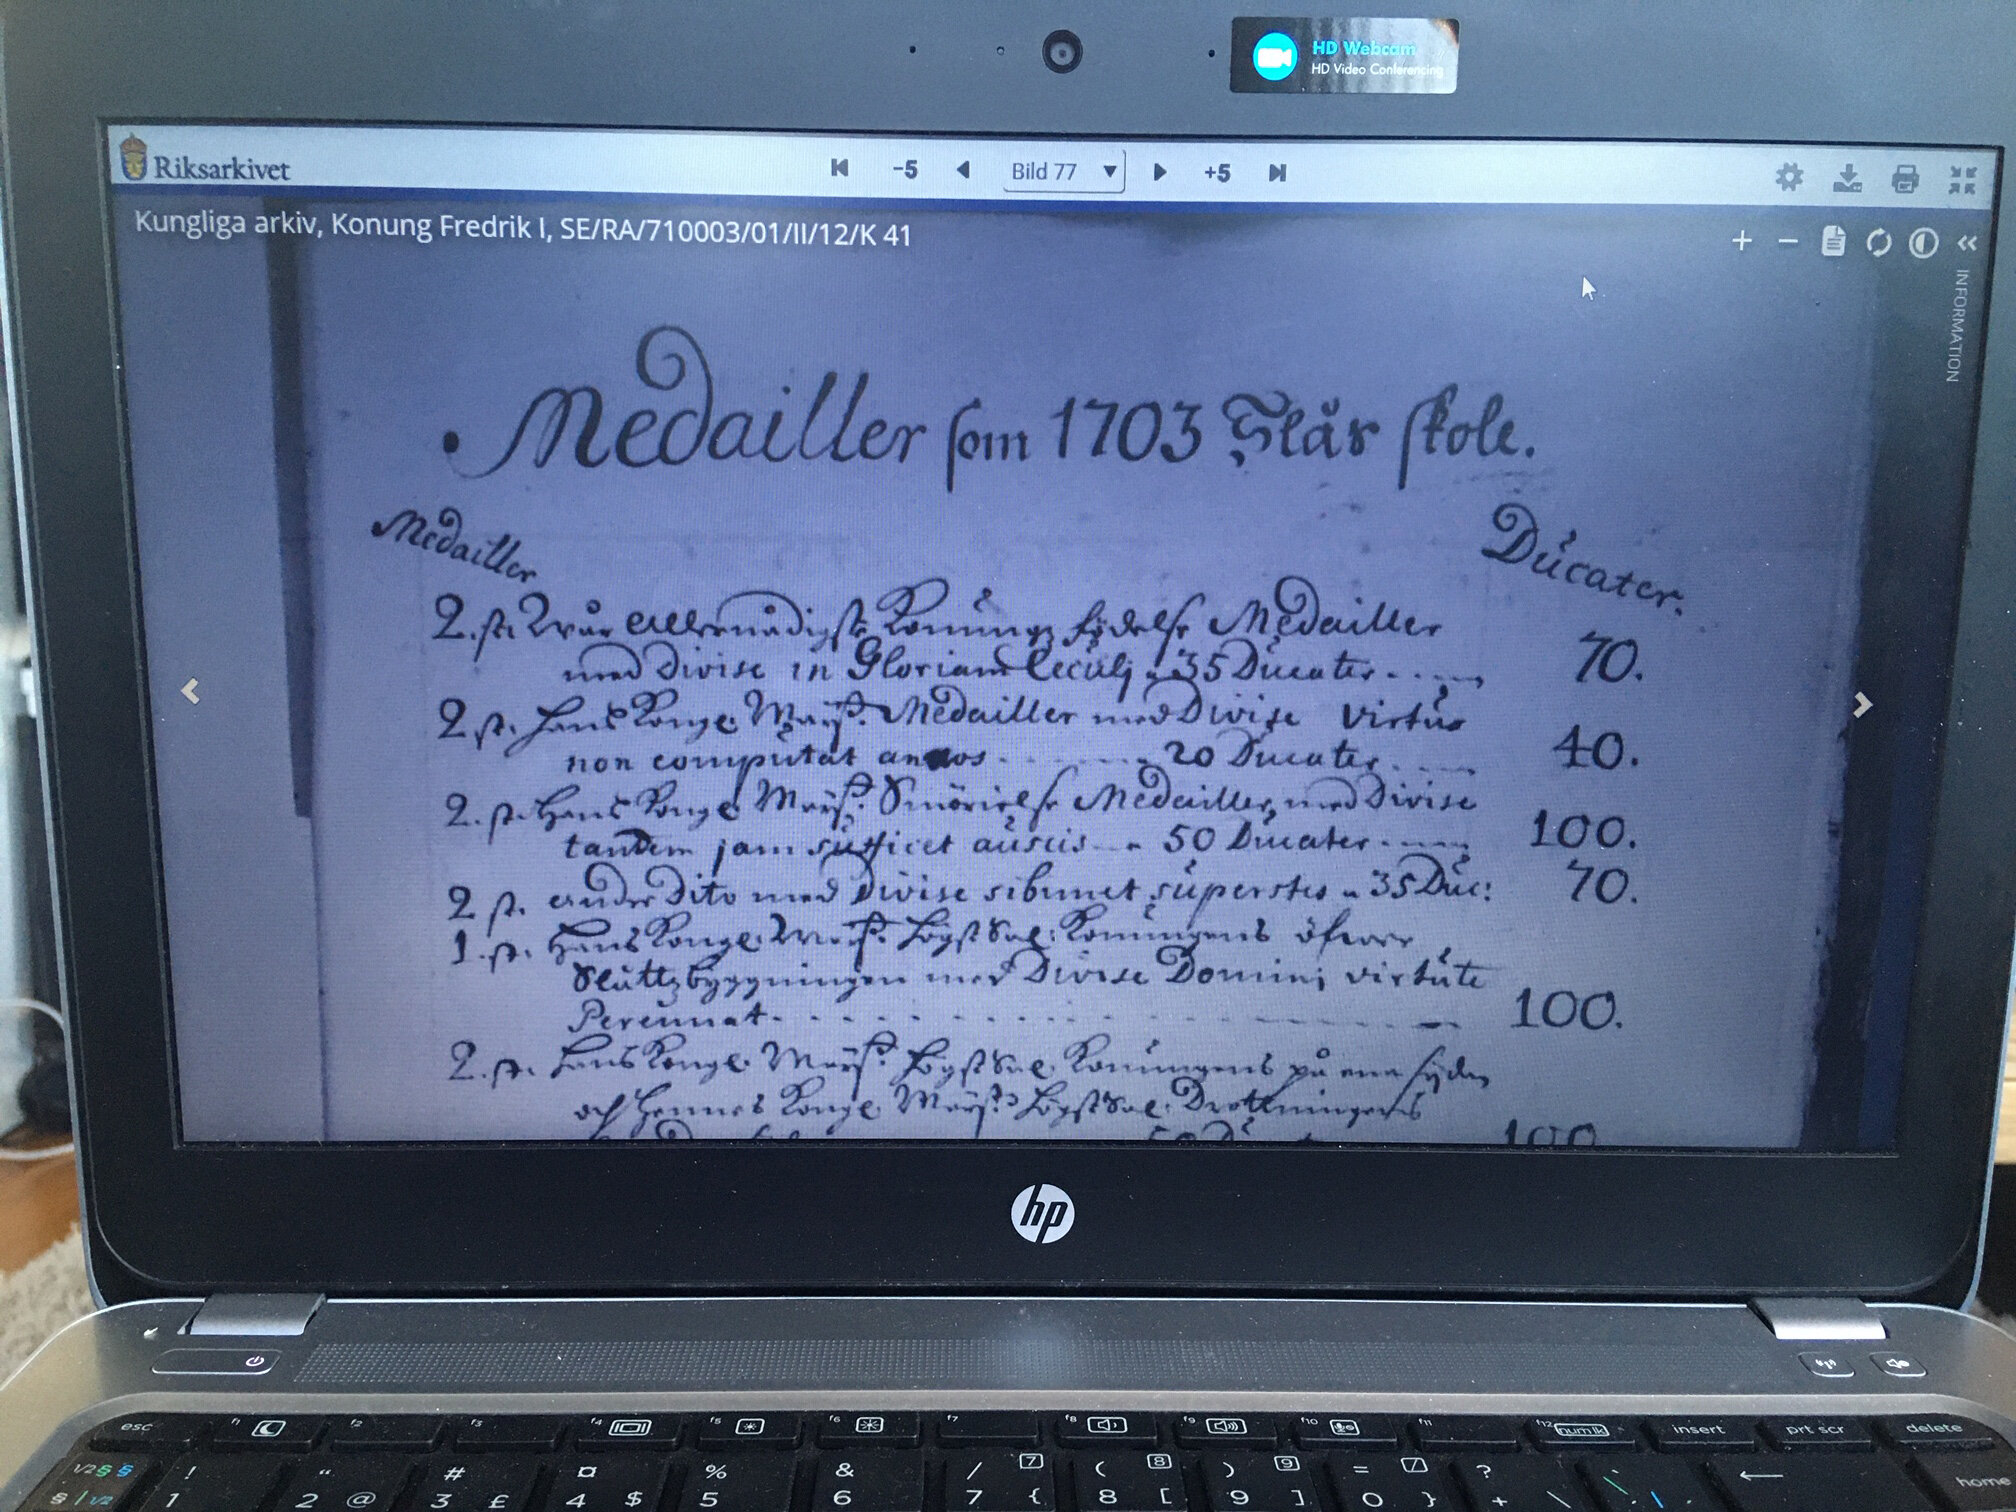 HD Webcam
HD Video Conferencing
Riksarkivet
-5
Bild 77
+5
Kungliga arkiv, Konung Fredrik I, SE/RA/710003/01/II/12/K 41
INFORMATION
Medailler som 1703 Slås skole.
Medailler
Ducater.
2. st. Wår Allernådigste Konungz födelse Medailler
med Divise in Gloriam Seculj a 35 Ducater 70.
2 st. Hans Kongl. Mayst. Medailler med Divise Virtus
non computat annos 20 Ducater 40.
2. st. Hans Kongl. Mayst. Smörielse Medailler, med Divise
tandem jam sufficet auscis a 50 Ducater 100.
2 st. andre Dito med Divise sibimet superstes a 35 Duc: 70.
1. st. Hans Kongl. Mayst. Högst Sal: Konungens öfwer
Slåttzbyggningen med Divise Dominj virtute
Perennat 100.
2. st. Hans Kongl. Mayst. Högst Sal. Konungens på ena sydan
och Hennes Kongl. Mayst. Högst Sal. Drottningens
100
hp
esc
f1
f2
f3
f4
f5
f6
f7
f8
f9
f10
f11
f12
num lk
insert
prt scr
delete
1/2 § §
! " # ¤ % & / 7 ( 8 ) 9 = / ?
home
§ 1/2 1 2 @ 3 £ 4 $ 5 6 7 { 8 [ 9 ] 0 } + \